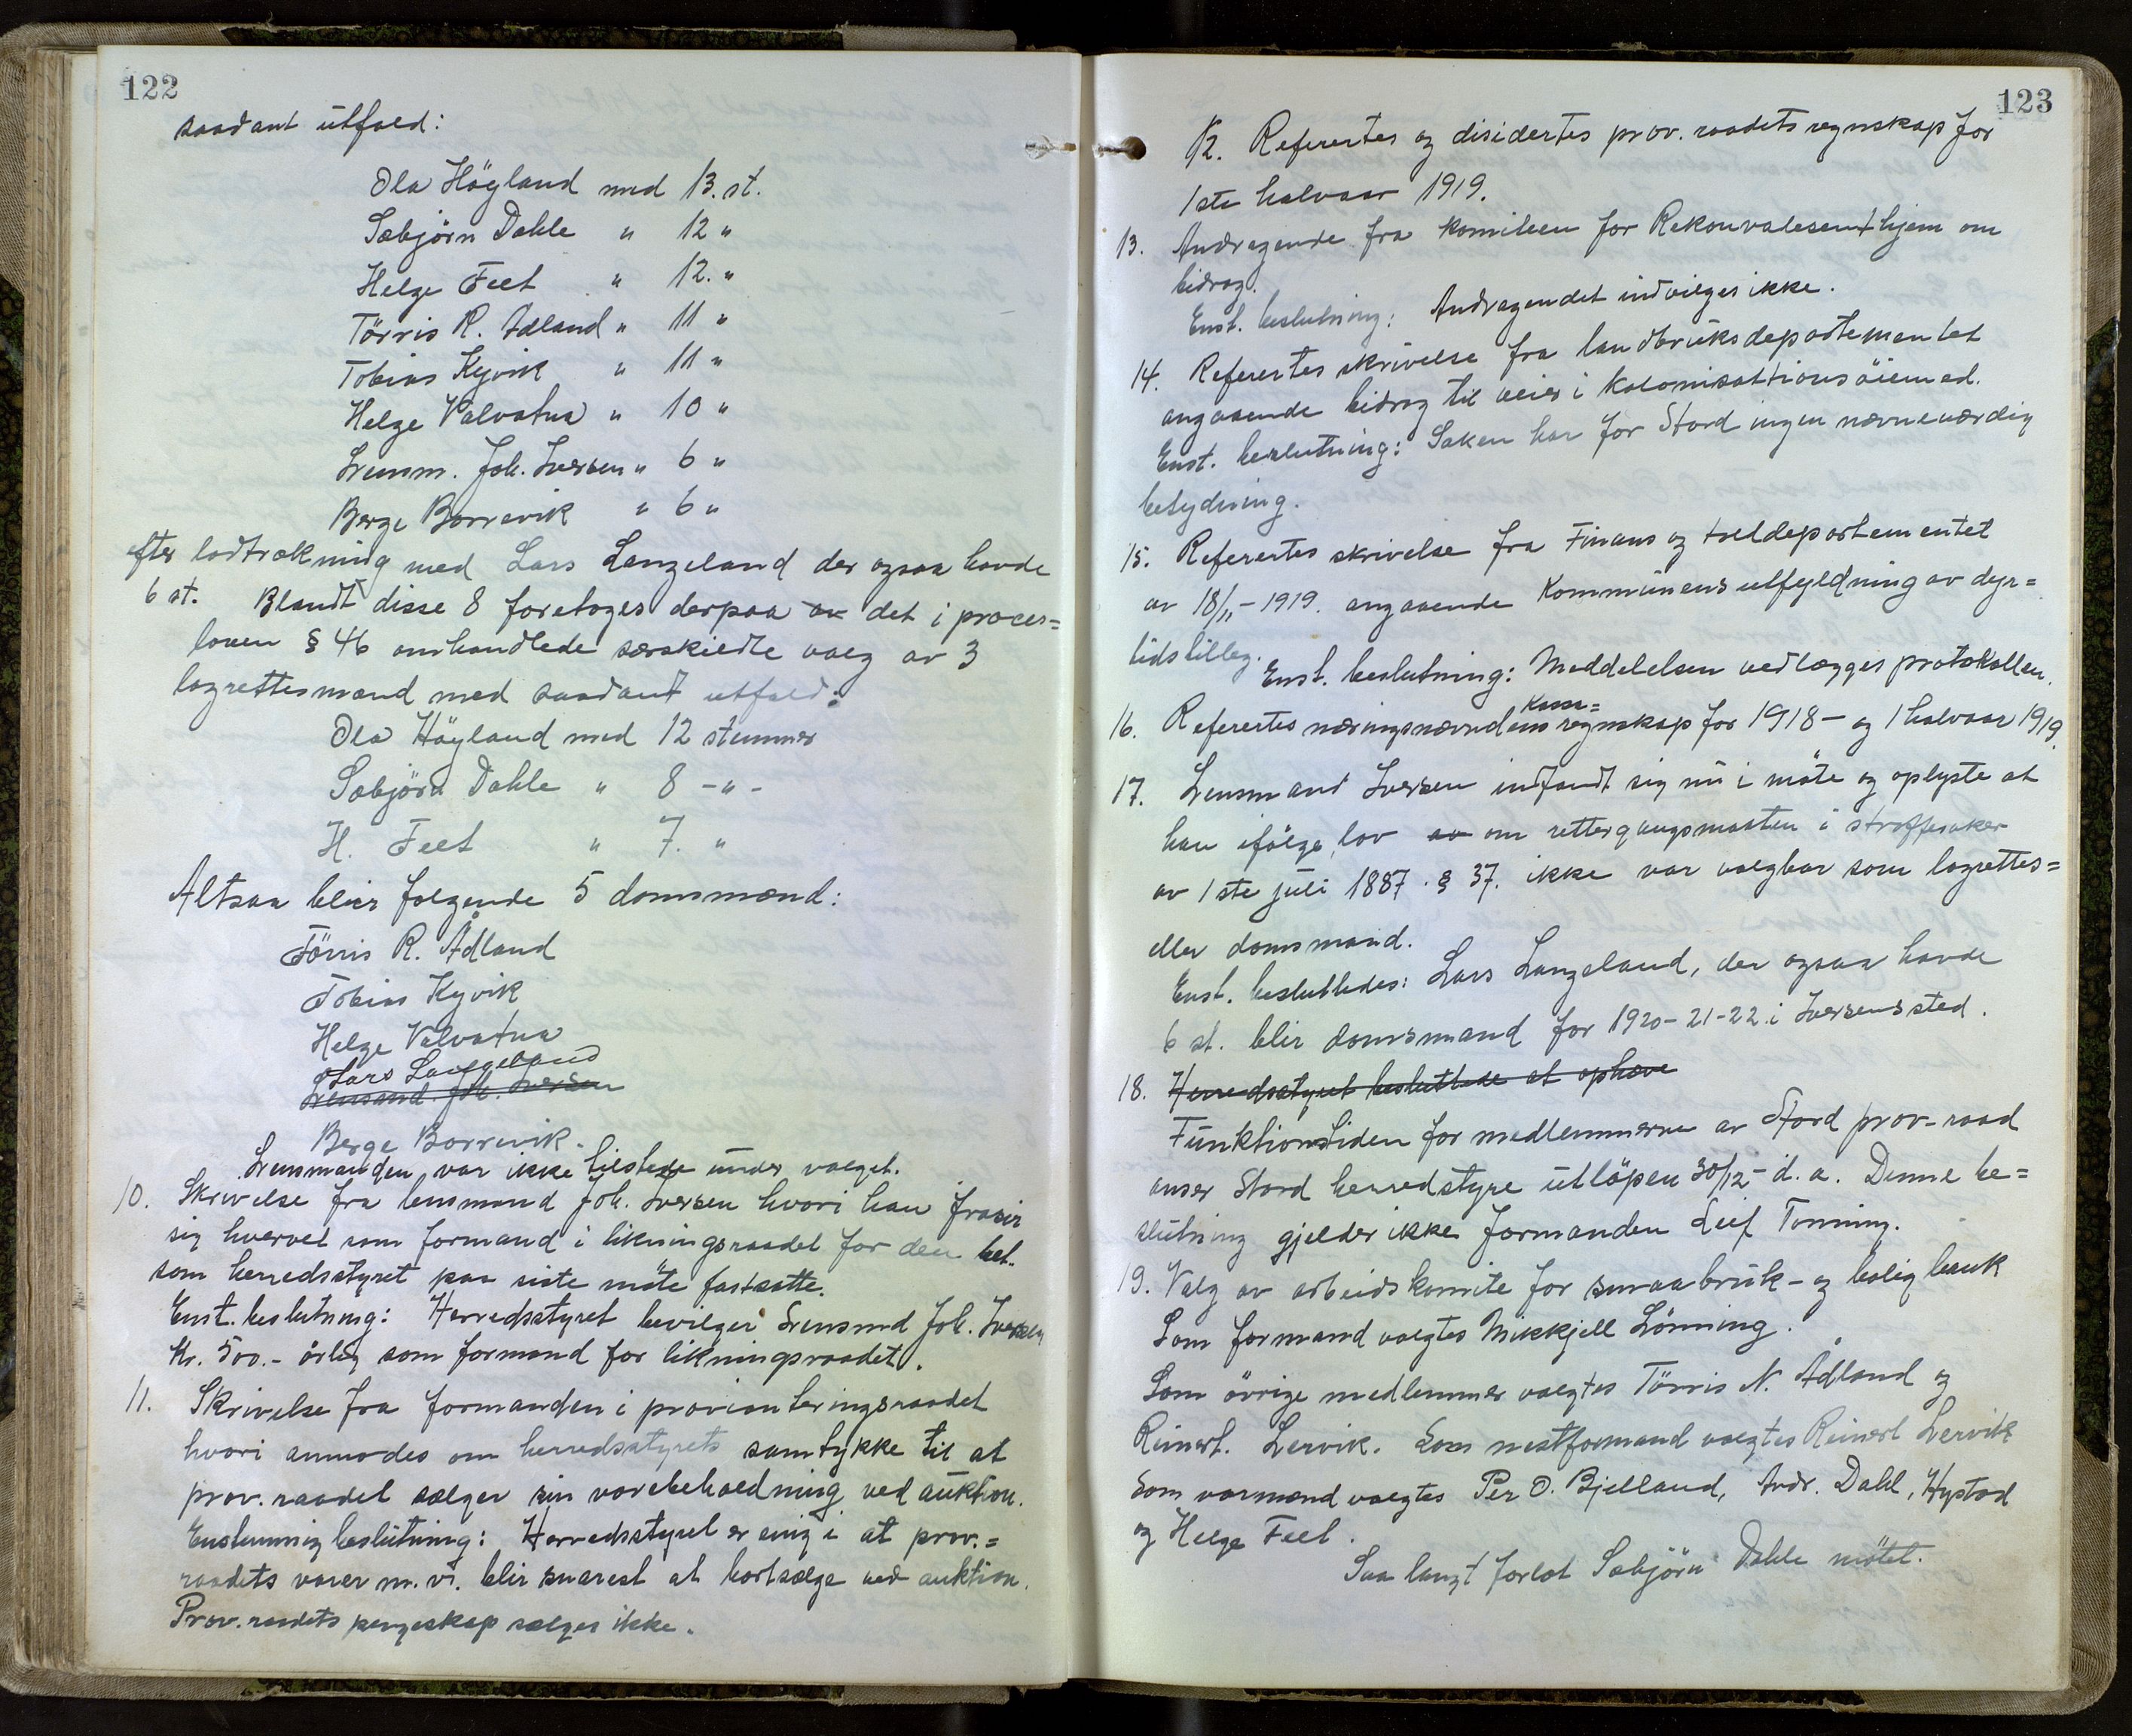 122
saadant utfald:
Ola Höyland med 13. st.
Sæbjörn Dahle " 12 "
Helge Feet " 12. "
Törris R. Adland " 11 "
Tobias Kyvik " 11 "
Helge Valvatna " 10 "
Lensm. Joh. Iversen " 6 "
Berge Borrevik " 6 "
efter lodtrækning med Lars Langeland der ogsaa havde
6 st. Blandt disse 8 foretoges derpaa av det i proces=
loven § 46 omhandlede særskildte valg av 3
lagrettesmænd med saadant utfald:
Ola Höyland med 12 stemmer
Sæbjörn Dahle " 8 - " -
H. Feet " 7. "
Altsaa blir følgende 5 domsmænd:
Törris R. Ådland
Tobias Kyvik
Helge Valvatna
Lars Langeland
Lensmand Joh. Iversen
Berge Borrevik.
Lensmanden var ikke tilstede under valget.
10. Skrivelse fra lensmand Joh. Iversen hvori han frasir
sig hvervet som formand i likningsraadet for den bet.
som herredsstyret paa siste möte fastsatte.
Enst. beslutning: Herredsstyret bevilger Lensmd Joh. Iversen
Kr. 500.- årlig som formand for likningsraadet.
11. Skrivelse fra formanden i provianteringsraadet
hvori anmodes om herredsstyrets samtykke til at
prov. raadet sælger sin varebeholdning ved auktion.
Enstemmig beslutning: Herredsstyret er enig i at prov.=
raadets varer m. v. blir snarest at bortsælge ved auktion.
Prov. raadets pengeskap sælges ikke.
123
12. Referertes og disidertes prov. raadets regnskap for
1ste halvaar 1919.
13. Andragende fra komiteen for Rekonvalesenthjem om
bidrag.
Enst. beslutning: Andragendet indvilges ikke.
14. Referertes skrivelse fra landbruksdepartementet
angaaende bidrag til veier i kolonisationsöiemed.
Enst. beslutning: Saken har for Stord ingen nævneværdig
betydning.
15. Referertes skrivelse fra Finans og tolddepartementet
av 18/11-1919. angaaende Kommunens utfyldning av dyr=
tidstillæg.
Enst. beslutning: Meddelelsen vedlægges protokollen.
Kasse=
16. Referertes næringsnævndens regnskap for 1918 - og 1 halvaar 1919.
17. Lensmand Iversen indfandt sig nu i möte og oplyste at
han ifölge lov av om rettergangsmaaten i straffesaker
av 1ste juli 1887. § 37. ikke var valgbar som lagrettes=
eller domsmand.
Enst. besluttedes: Lars Langeland, der ogsaa havde
6 st. blir domsmand for 1920-21-22 i Iversens sted.
18. Herredsstyret besluttede at ophæve
Funktionstiden for medlemmerne av Stord prov-raad
anser Stord herredstyre utlöpen 30/12- d. a. Denne be=
slutning gjelder ikke formanden Leif Tonning.
19. Valg av arbeidskomite for smaabruk- og bolig bank
Som formand valgtes Mikkjell Lönning.
Som övrige medlemmer valgtes Törris N. Ådland og
Reinert. Lervik. Som nestformand valgtes Reinert Lervik
Som varmænd valgtes Per O. Bjelland, Andr. Dahl, Hystad
og Helge Feet.
Saa langt forlot Sæbjörn Dahle mötet.